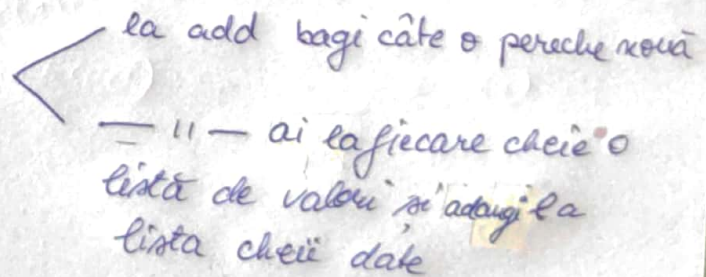 la add bagi câte o pereche nouă
— " — ai la fiecare cheie o
listă de valori și adaugi la
lista cheii date